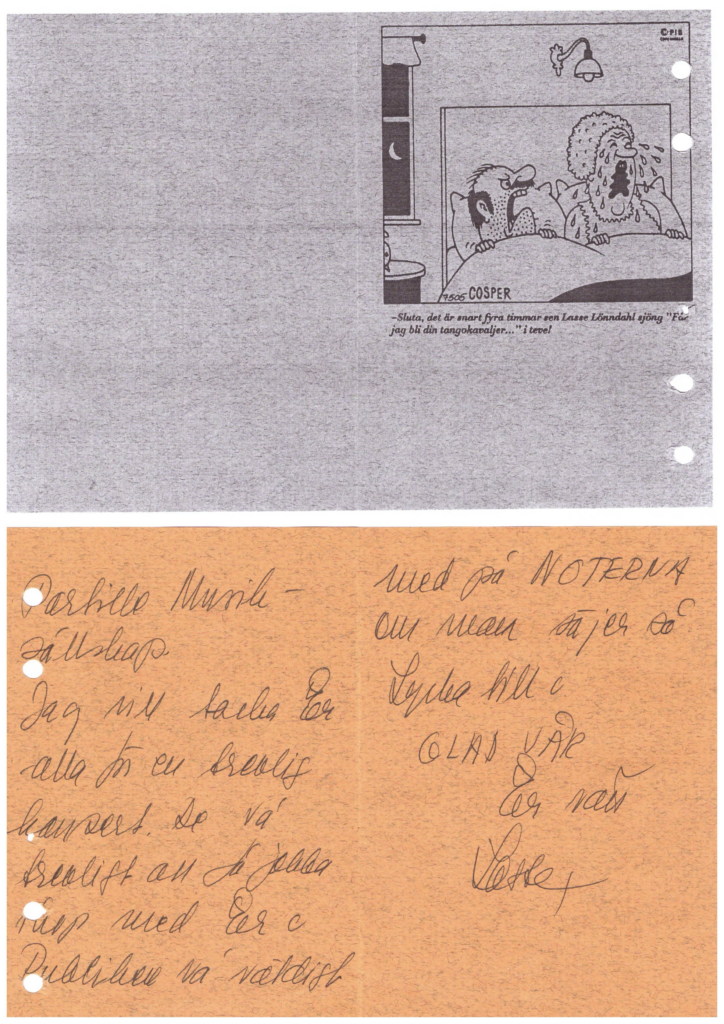 © PIB
COPENHAGEN
7505 COSPER
-Sluta, det är snart fyra timmar sen Lasse Lönndahl sjöng "Får
jag bli din tangokavaljer..." i teve!
Partille Musik-
sällskap
Jag vill tacka Er
alla för en trevlig
konsert. De va'
trevligt att få jobba
ihop med Er o
Publiken va' väldigt
med på NOTERNA
om man säjer så
Lycka till o
GLAD VÅR
Er vän
Lasse